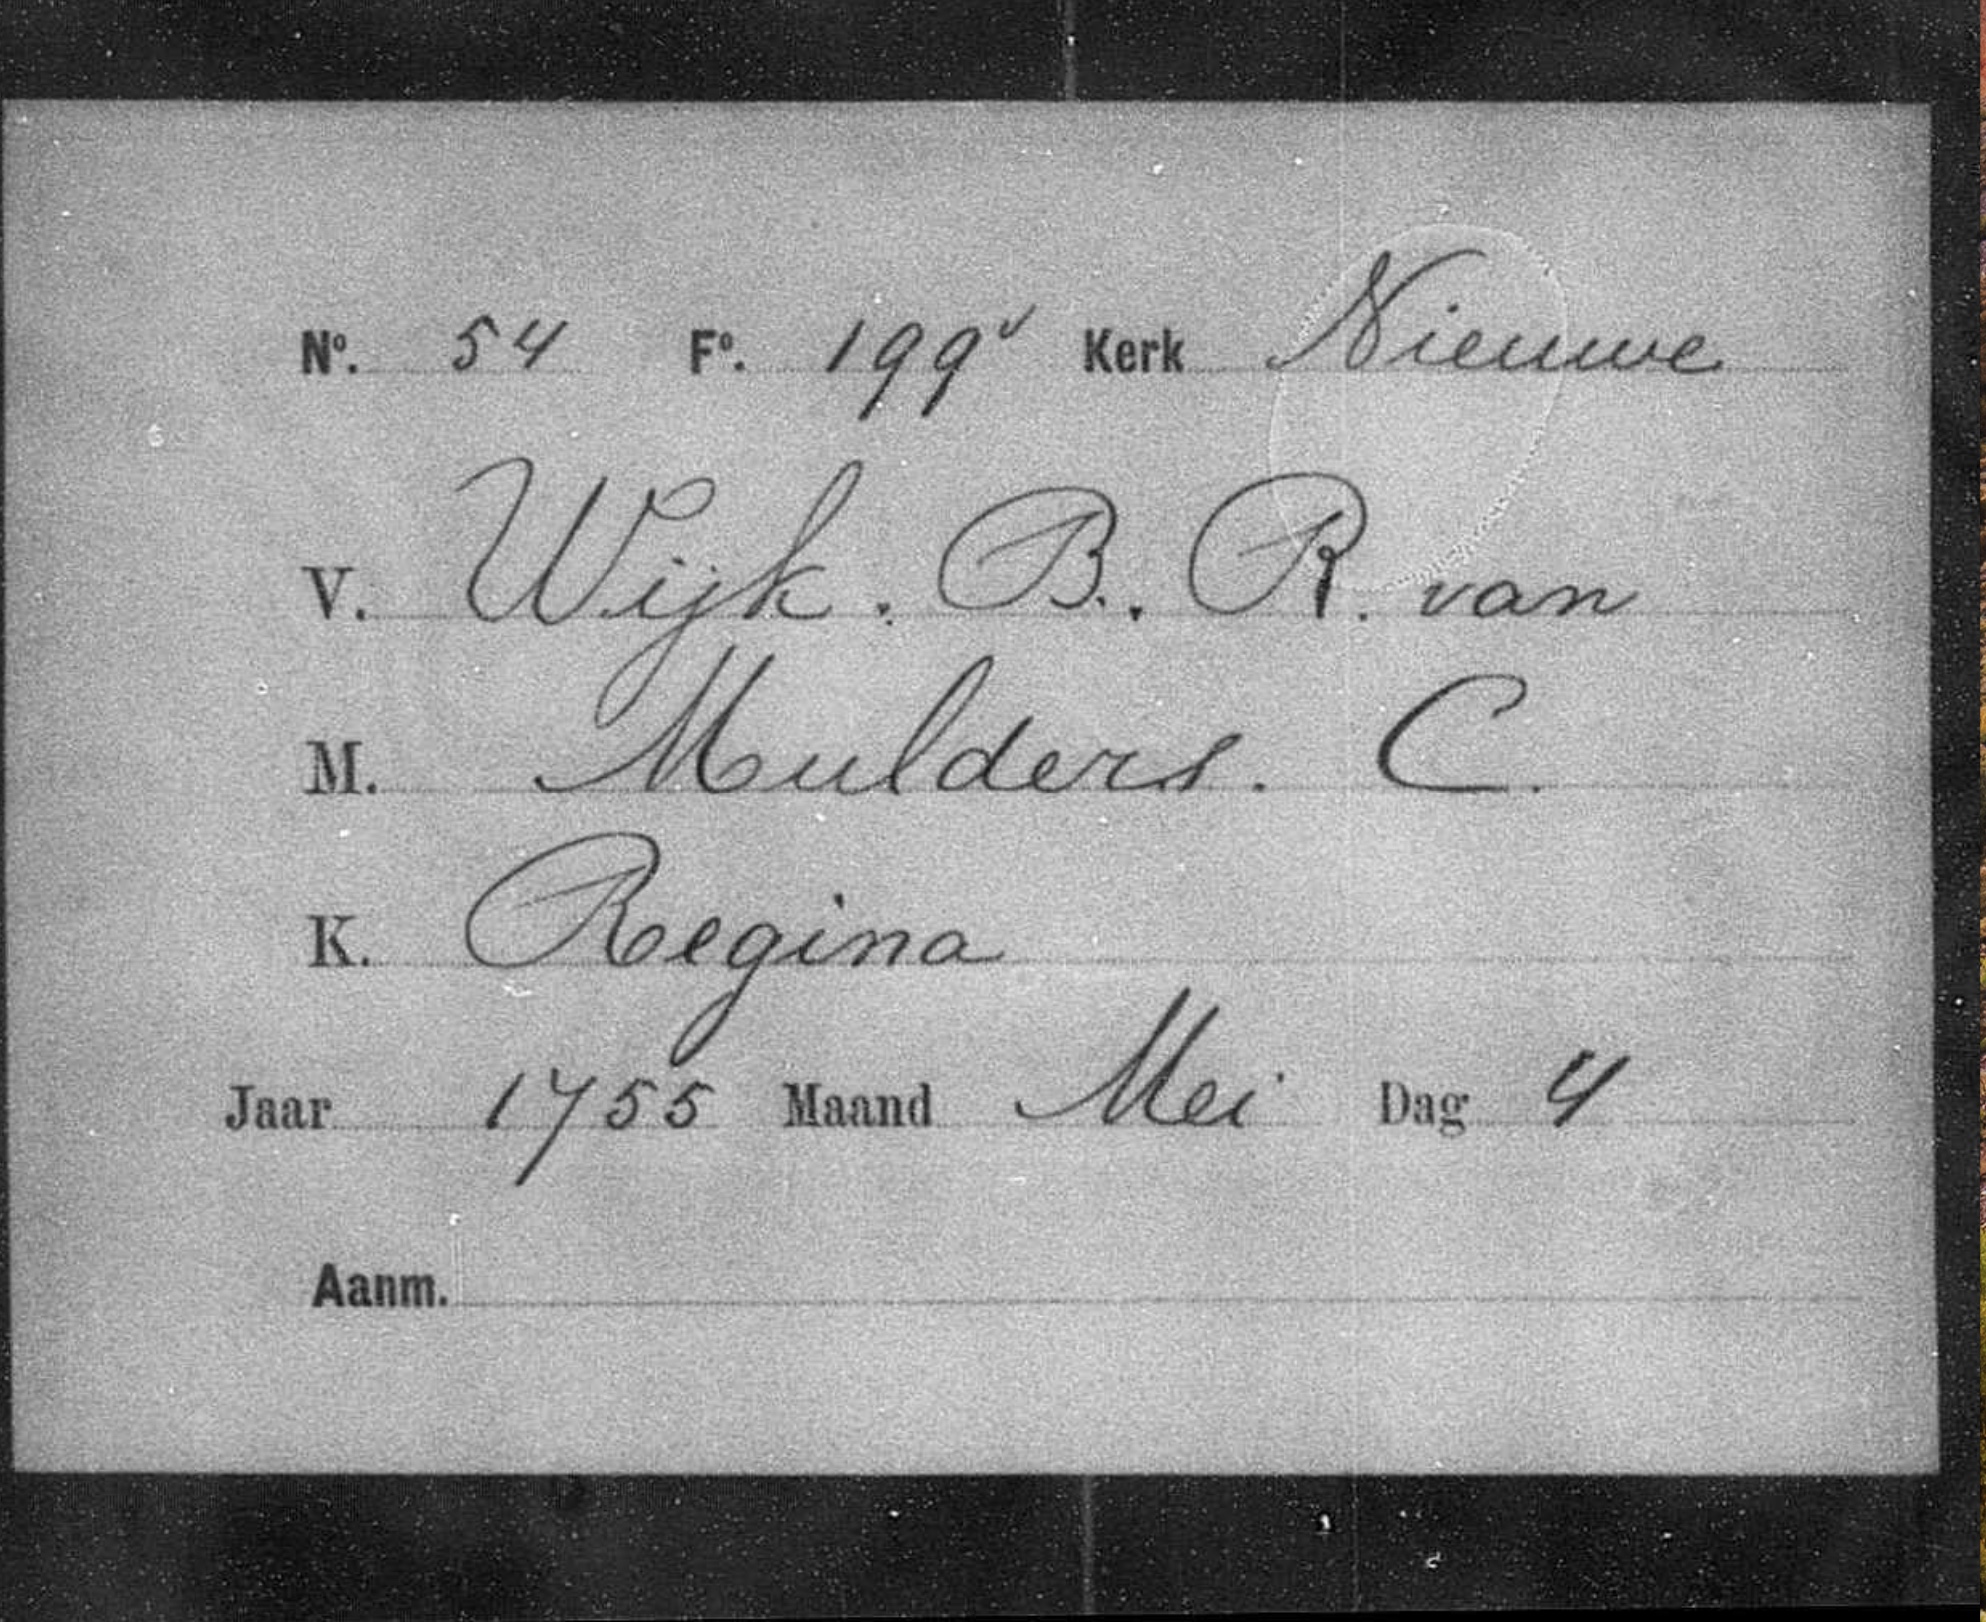 Nº. 54 Fº. 199v Kerk Nieuwe
V. Wijk. B. R. van
M. Mulders. C.
K. Regina
Jaar 1755 Maand Mei Dag 4
Aanm.